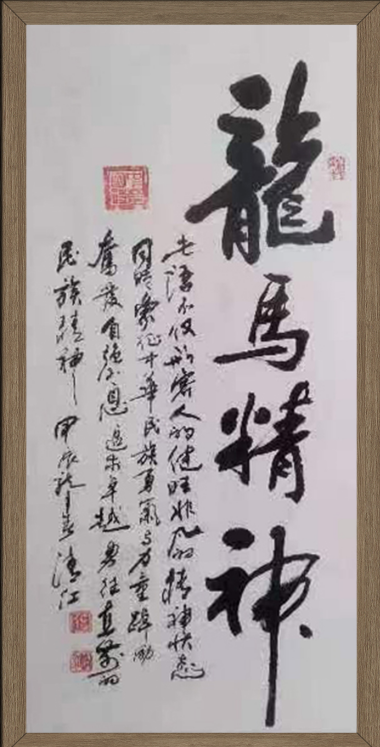 龍馬精神
此语不仅形容人的健旺非凡的精神状态
同时象征中华民族勇气与力量踔励
奮发自强不息追求卓越勇往直前的
民族精神 甲辰龙春清江